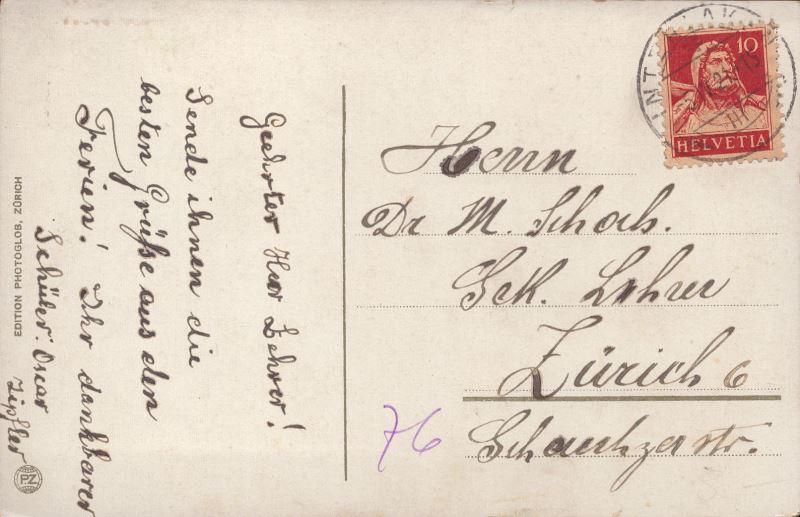 Geehrter Herr Lehrer!
Sende ihnen die
besten Grüße aus den
Ferien! Ihr dankbarer
Schüler: Oscar
EDITION PHOTOGLOB, ZÜRICH
PZ
10
HELVETIA
Herrn
Dr M.
Sek. Lehrer
Zürich 6
Scheuchzerstr.
76